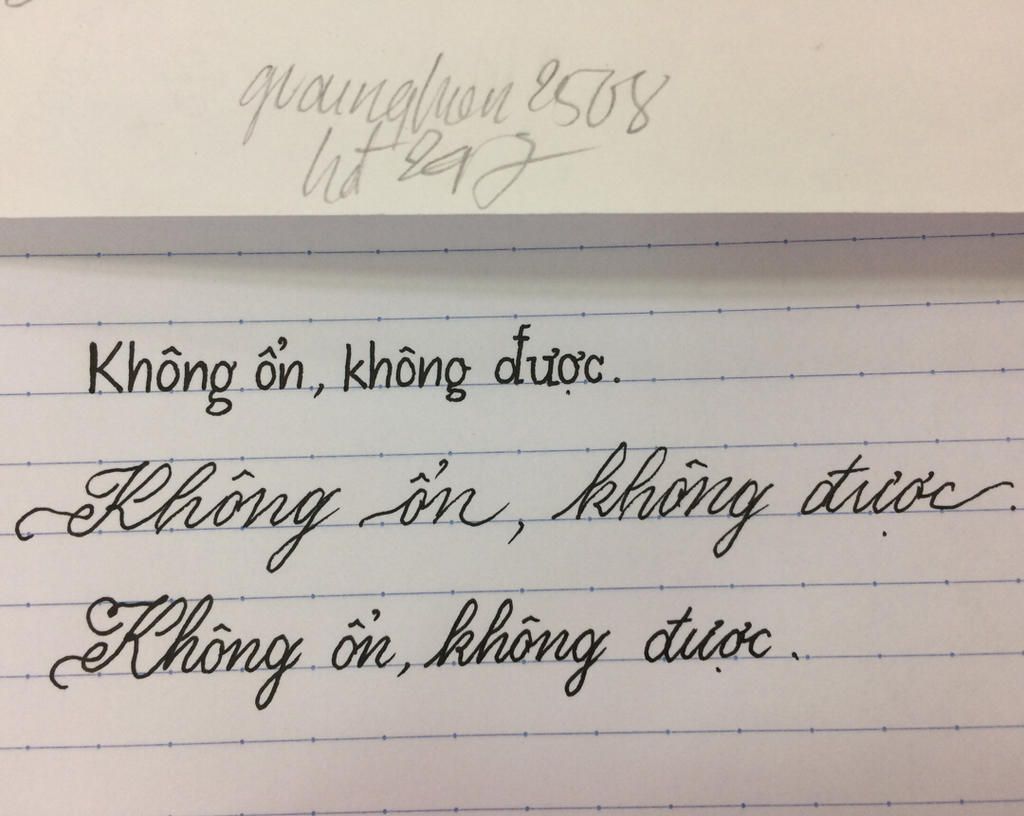 Không ổn, không được.
Không ổn, không được.
Không ổn, không được.